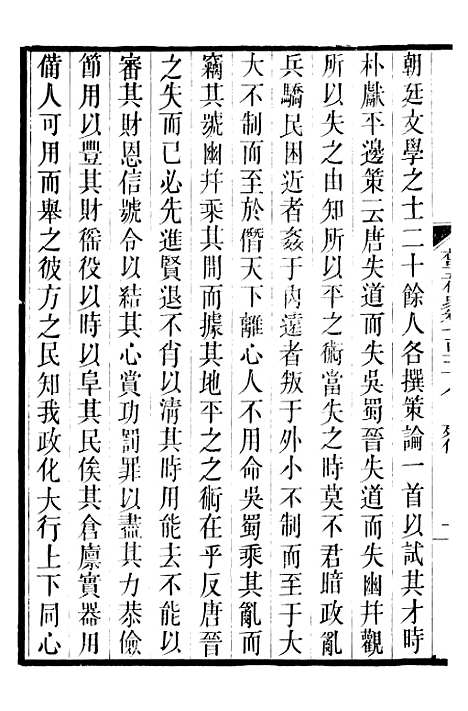 朝廷文學之士二十餘人各撰策論一首以試其才時
朴獻平邊策云唐失道而失吳蜀晉失道而失幽并觀
所以失之由知所以平之術當失之時莫不君暗政亂
兵驕民困近者姦于內遠者叛于外小不制而至于大
大不制而至於僭天下離心人不用命吳蜀乘其亂而
竊其號幽并乘其間而據其地平之之術在乎反唐晉
之失而已必先進賢退不肖以清其時用能去不能以
審其財恩信號令以結其心賞功罰罪以盡其力恭儉
節用以豐其財徭役以時以阜其民俟其倉廪實器用
備人可用而舉之彼方之民知我政化大行上下同心